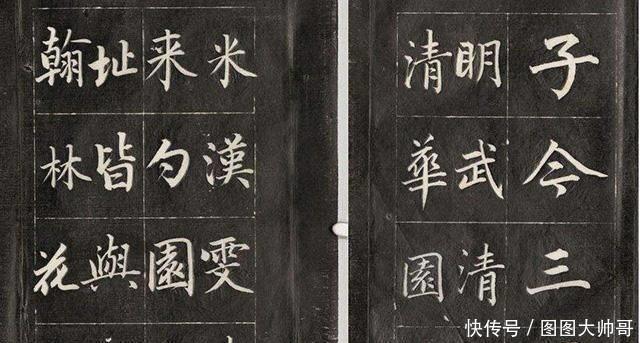 子今三
明武清
清華園
米漢雯
来勺園
址皆與
翰林花
快传号 / 图图大帅哥